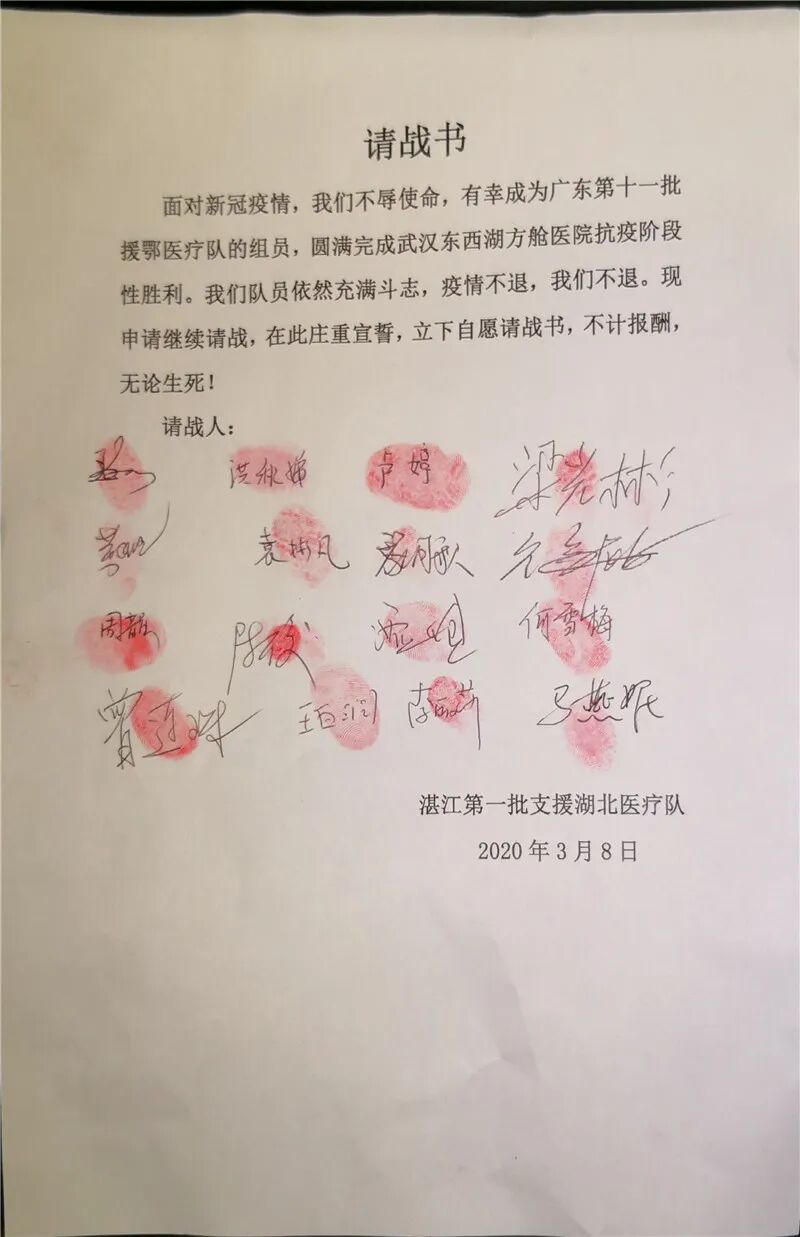 请战书
面对新冠疫情，我们不辱使命，有幸成为广东第十一批
援鄂医疗队的组员，圆满完成武汉东西湖方舱医院抗疫阶段
性胜利。我们队员依然充满斗志，疫情不退，我们不退。现
申请继续请战，在此庄重宣誓，立下自愿请战书，不计报酬，
无论生死！
请战人：
洪秋婵 卢婷 梁光林
袁彬凡
周韵 陈俊 何雪梅
曾连珠 王百润 李丽莉 马燕妮
湛江第一批支援湖北医疗队
2020 年 3 月 8 日